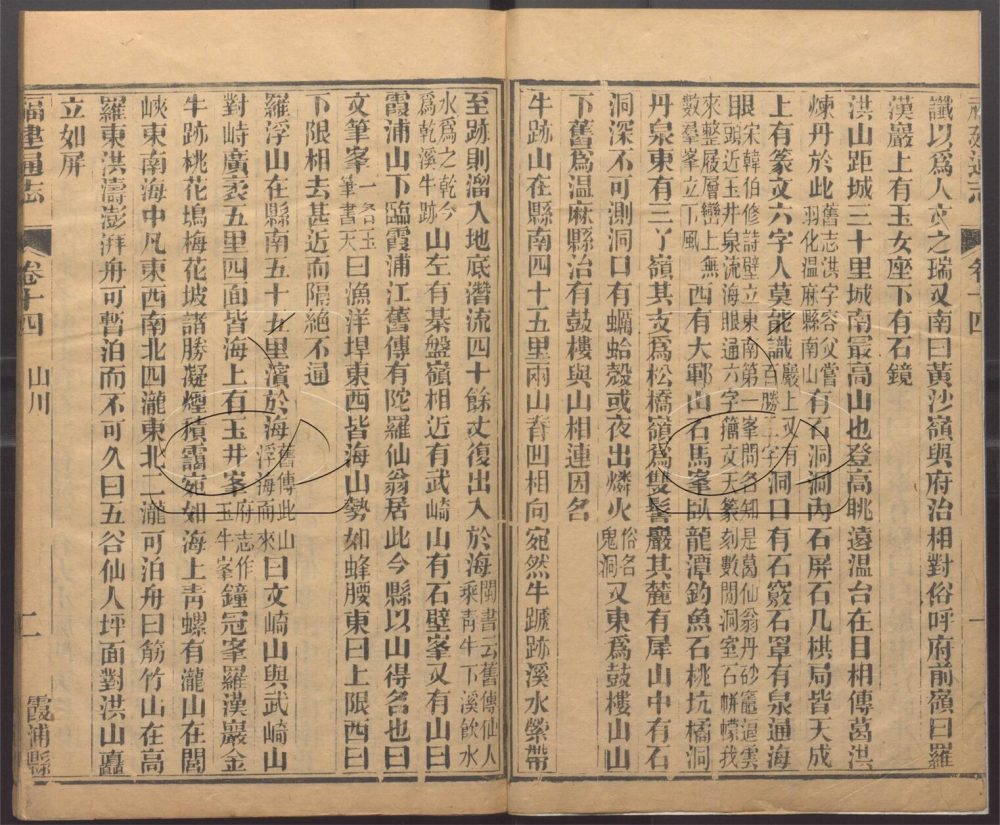 讖以爲人文之瑞又南曰黃沙嶺與府治相對俗呼府前嶺曰羅
漢巖上有玉女座下有石鏡
洪山距城三十里城南最高山也登高眺遠溫台在目相傳葛洪
煉丹於此舊志洪字容父嘗羽化溫麻縣南山有石洞洞內石屏石几棋局皆天成
上有篆文六字人莫能識巖上又有百勝二字洞口有石竅石罩有泉通海
眼宋韓伯修詩壁立東南第一峯問名知是葛仙翁丹砂竈逈雲眼頭近玉井泉流海眼通六字籀文天篆刻數間洞室石帡幪我
來整屐層巒上無數羣峯立下風西有大鄆山石馬峯臥龍潭釣魚石桃坑橘洞
丹泉東有三丫嶺其支爲松橋嶺爲雙髻巖其麓有犀山中有石
洞深不可測洞口有蠣蛤殼或夜出燐火俗名鬼洞又東爲鼓樓山山
下舊爲溫麻縣治有鼓樓與山相連因名
牛跡山在縣南四十五里兩山脊凹相向宛然牛蹏跡溪水縈帶
至跡則溜入地底潛流四十餘丈復出入於海閩書云舊傳仙人乘靑牛下溪飲水
水爲之乾今爲乾溪牛跡山左有棊盤嶺相近有武崎山有石壁峯又有山曰
霞浦山下臨霞浦江舊傳有陀羅仙翁居此今縣以山得名也曰
文筆峯一名玉筆書天曰漁洋垾東西皆海山勢如蜂腰東曰上限西曰
下限相去甚近而隔絕不通
羅浮山在縣南五十五里濱於海舊傳此山浮海而來曰文崎山與武崎山
對峙廣袤五里四面皆海上有玉井峯府志作玉牛峯鐘冠峯羅漢巖金
牛跡桃花塢梅花坡諸勝凝煙積靄宛如海上靑螺有瀧山在閭
峽東南海中凡東西南北四瀧東北二瀧可泊舟曰筋竹山在高
羅東洪濤澎湃舟可暫泊而不可久曰五谷仙人坪面對洪山矗
立如屏
福建通志
卷十四
山川
二
霞浦縣